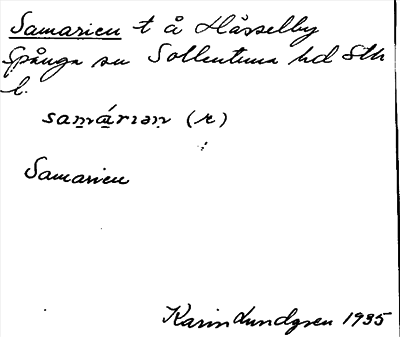 Samarien t å Hässelby
Spånga sn Sollentuna hd Sth
l.
samárıən (r)
Samarien
Karin Lundgren 1935